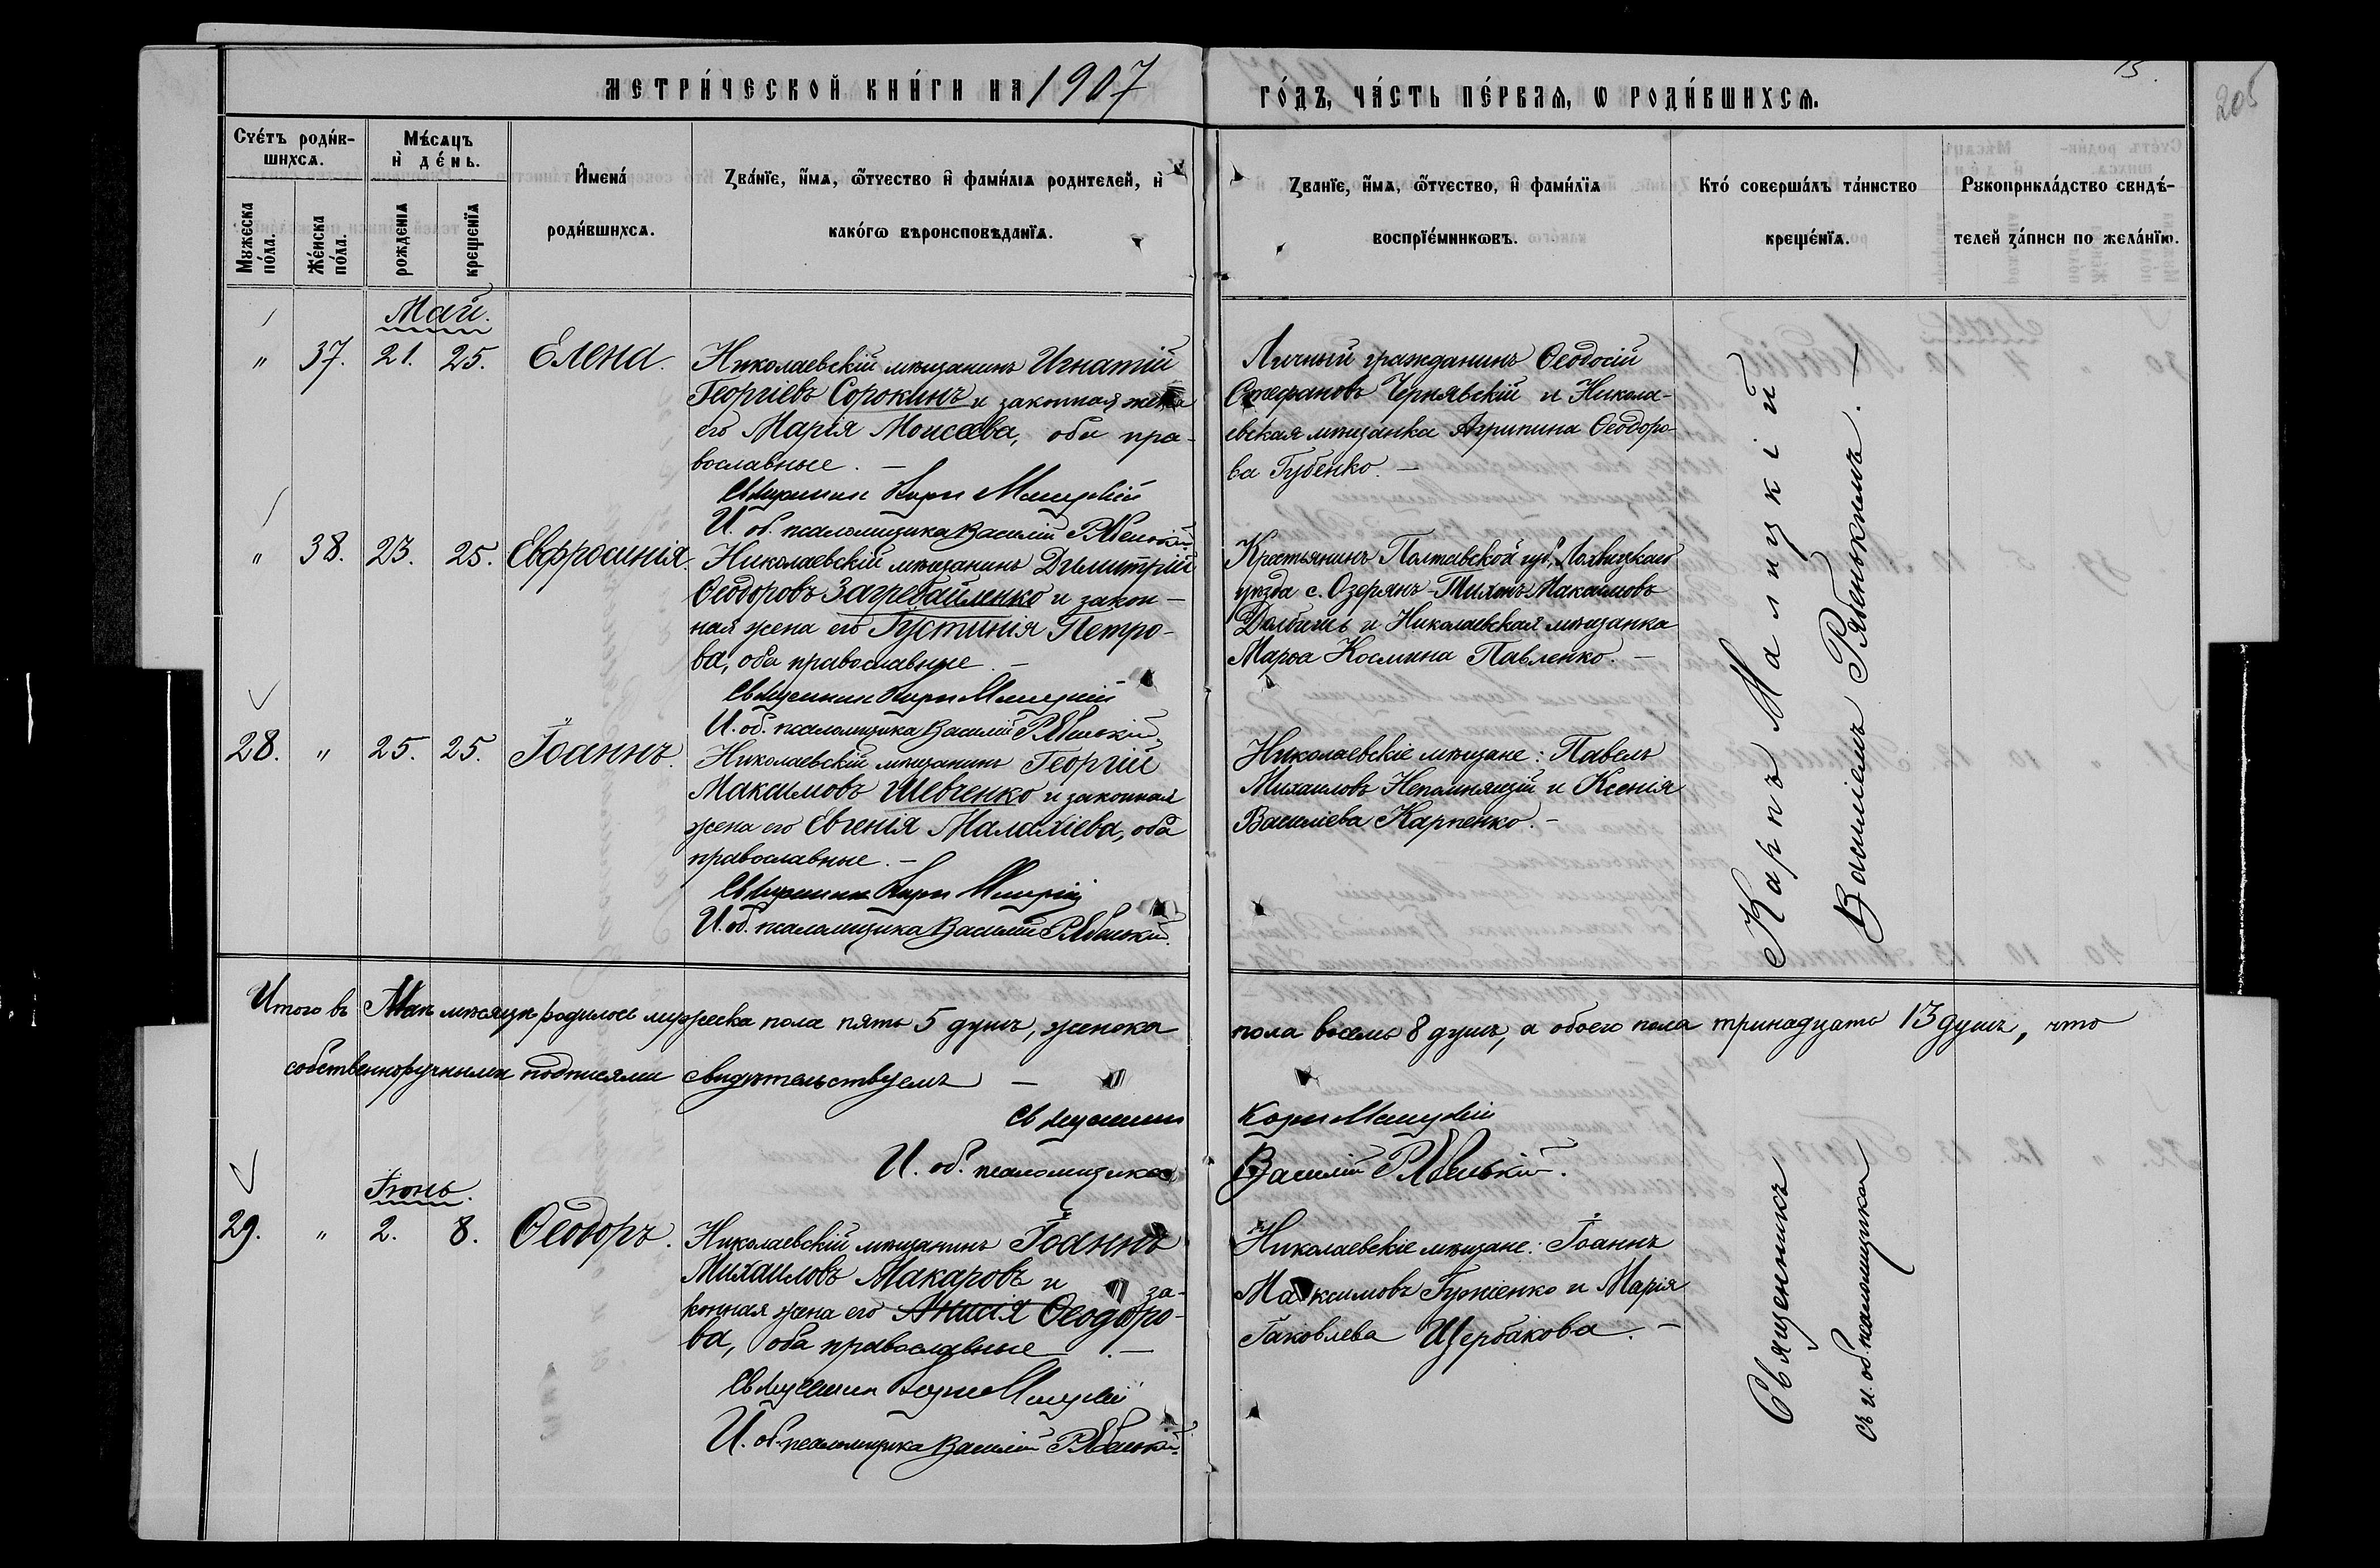 МЕТРИ́ЧЕСКОЙ КНИ́ГИ НА 1907
ГО́ДЪ, ЧА́СТЬ ПЕ́РВАЯ, Ѡ РОДИ́ВШИХСЯ.
15.
205
Сче́тъ роди́вшихся.
Му́жеска по́ла.
Же́нска по́ла.
Мѣ́сяцъ и҆ де́нь.
рожденїя
крещенїя
И҆мена́
роди́вшихся.
Зва́нїе, и҆́мя, ѻ҆́тчество и҆ фами́лїя родителей, и҆
како́гѡ вѣроисповѣ́данїя.
Званїе, и҆́мя, ѻ҆́тчество, и҆ фами́лїя
воспрїе́мникѡвъ.
Кто́ соверша́лъ та́инство
креще́нїя.
Рукоприкла́дство свидѣ́-
телей за́писи по жела́нїю.
Май.
" 37. 21. 25. Елена.
Николаевскій мѣщанинъ Игнатій
Георгіевъ Сорокинъ и законная жена
его Марія Моисеева, оба пра-
вославные. —
Священникъ Карпъ Малицкій
И. об. псаломщика Василій Рябенькій
Личный гражданинъ Ѳеодосій
Стефановъ Чернявскій и Никола-
евская мѣщанка Агрипина Ѳеодоро-
ва Губенко. —
" 38. 23. 25. Евфросинія.
Николаевскій мѣщанинъ Димитрій
Ѳеодоровъ Загребайленко и закон-
ная жена его Іустинія Петро-
ва, оба православные. —
Священникъ Карпъ Малицкій
И. об. псаломщика Василій Рябенькій.
Крестьянинъ Полтавской губ., Лохвицкаго
уѣзда с. Озерянъ Тихонъ Максимовъ
и Николаевская мѣщанка
Марѳа Космина Павленко. —
28. " 25. 25. Іоаннъ.
Николаевскій мѣщанинъ Георгій
Максимовъ Шевченко и законная
жена его Евгенія Малахіева, оба
православные. —
Священникъ Карпъ Малицкій
И. об. псаломщика Василій Рябенькій.
Николаевскіе мѣщане: Павелъ
Михаиловъ Непомнящій и Ксенія
Василіева Карпенко. —
Карпъ Малицкій
Василіемъ Рябенькимъ. —
Итого въ Маѣ мѣсяцѣ родилось мужеска пола пять 5 душъ, женска
пола восемь 8 душъ, а обоего пола тринадцать 13 душъ, что
собственноручными подписями свидѣтельствуемъ —
Священникъ Карпъ Малицкій
И. об. псаломщика Василій Рябенькій.
Іюнь.
29. " 2. 8. Ѳеодоръ.
Николаевскій мѣщанинъ Іоаннъ
Михаиловъ Макаровъ и за-
конная жена его Анисія Ѳеодоро-
ва, оба православные. —
Священникъ Карпъ Малицкій
И. об. псаломщика Василій Рябенькій.
Николаевскіе мѣщане: Іоаннъ
Максимовъ Гуженко и Марія
Іаковлева Щербакова. —
Священникъ
съ и. об. псаломщика